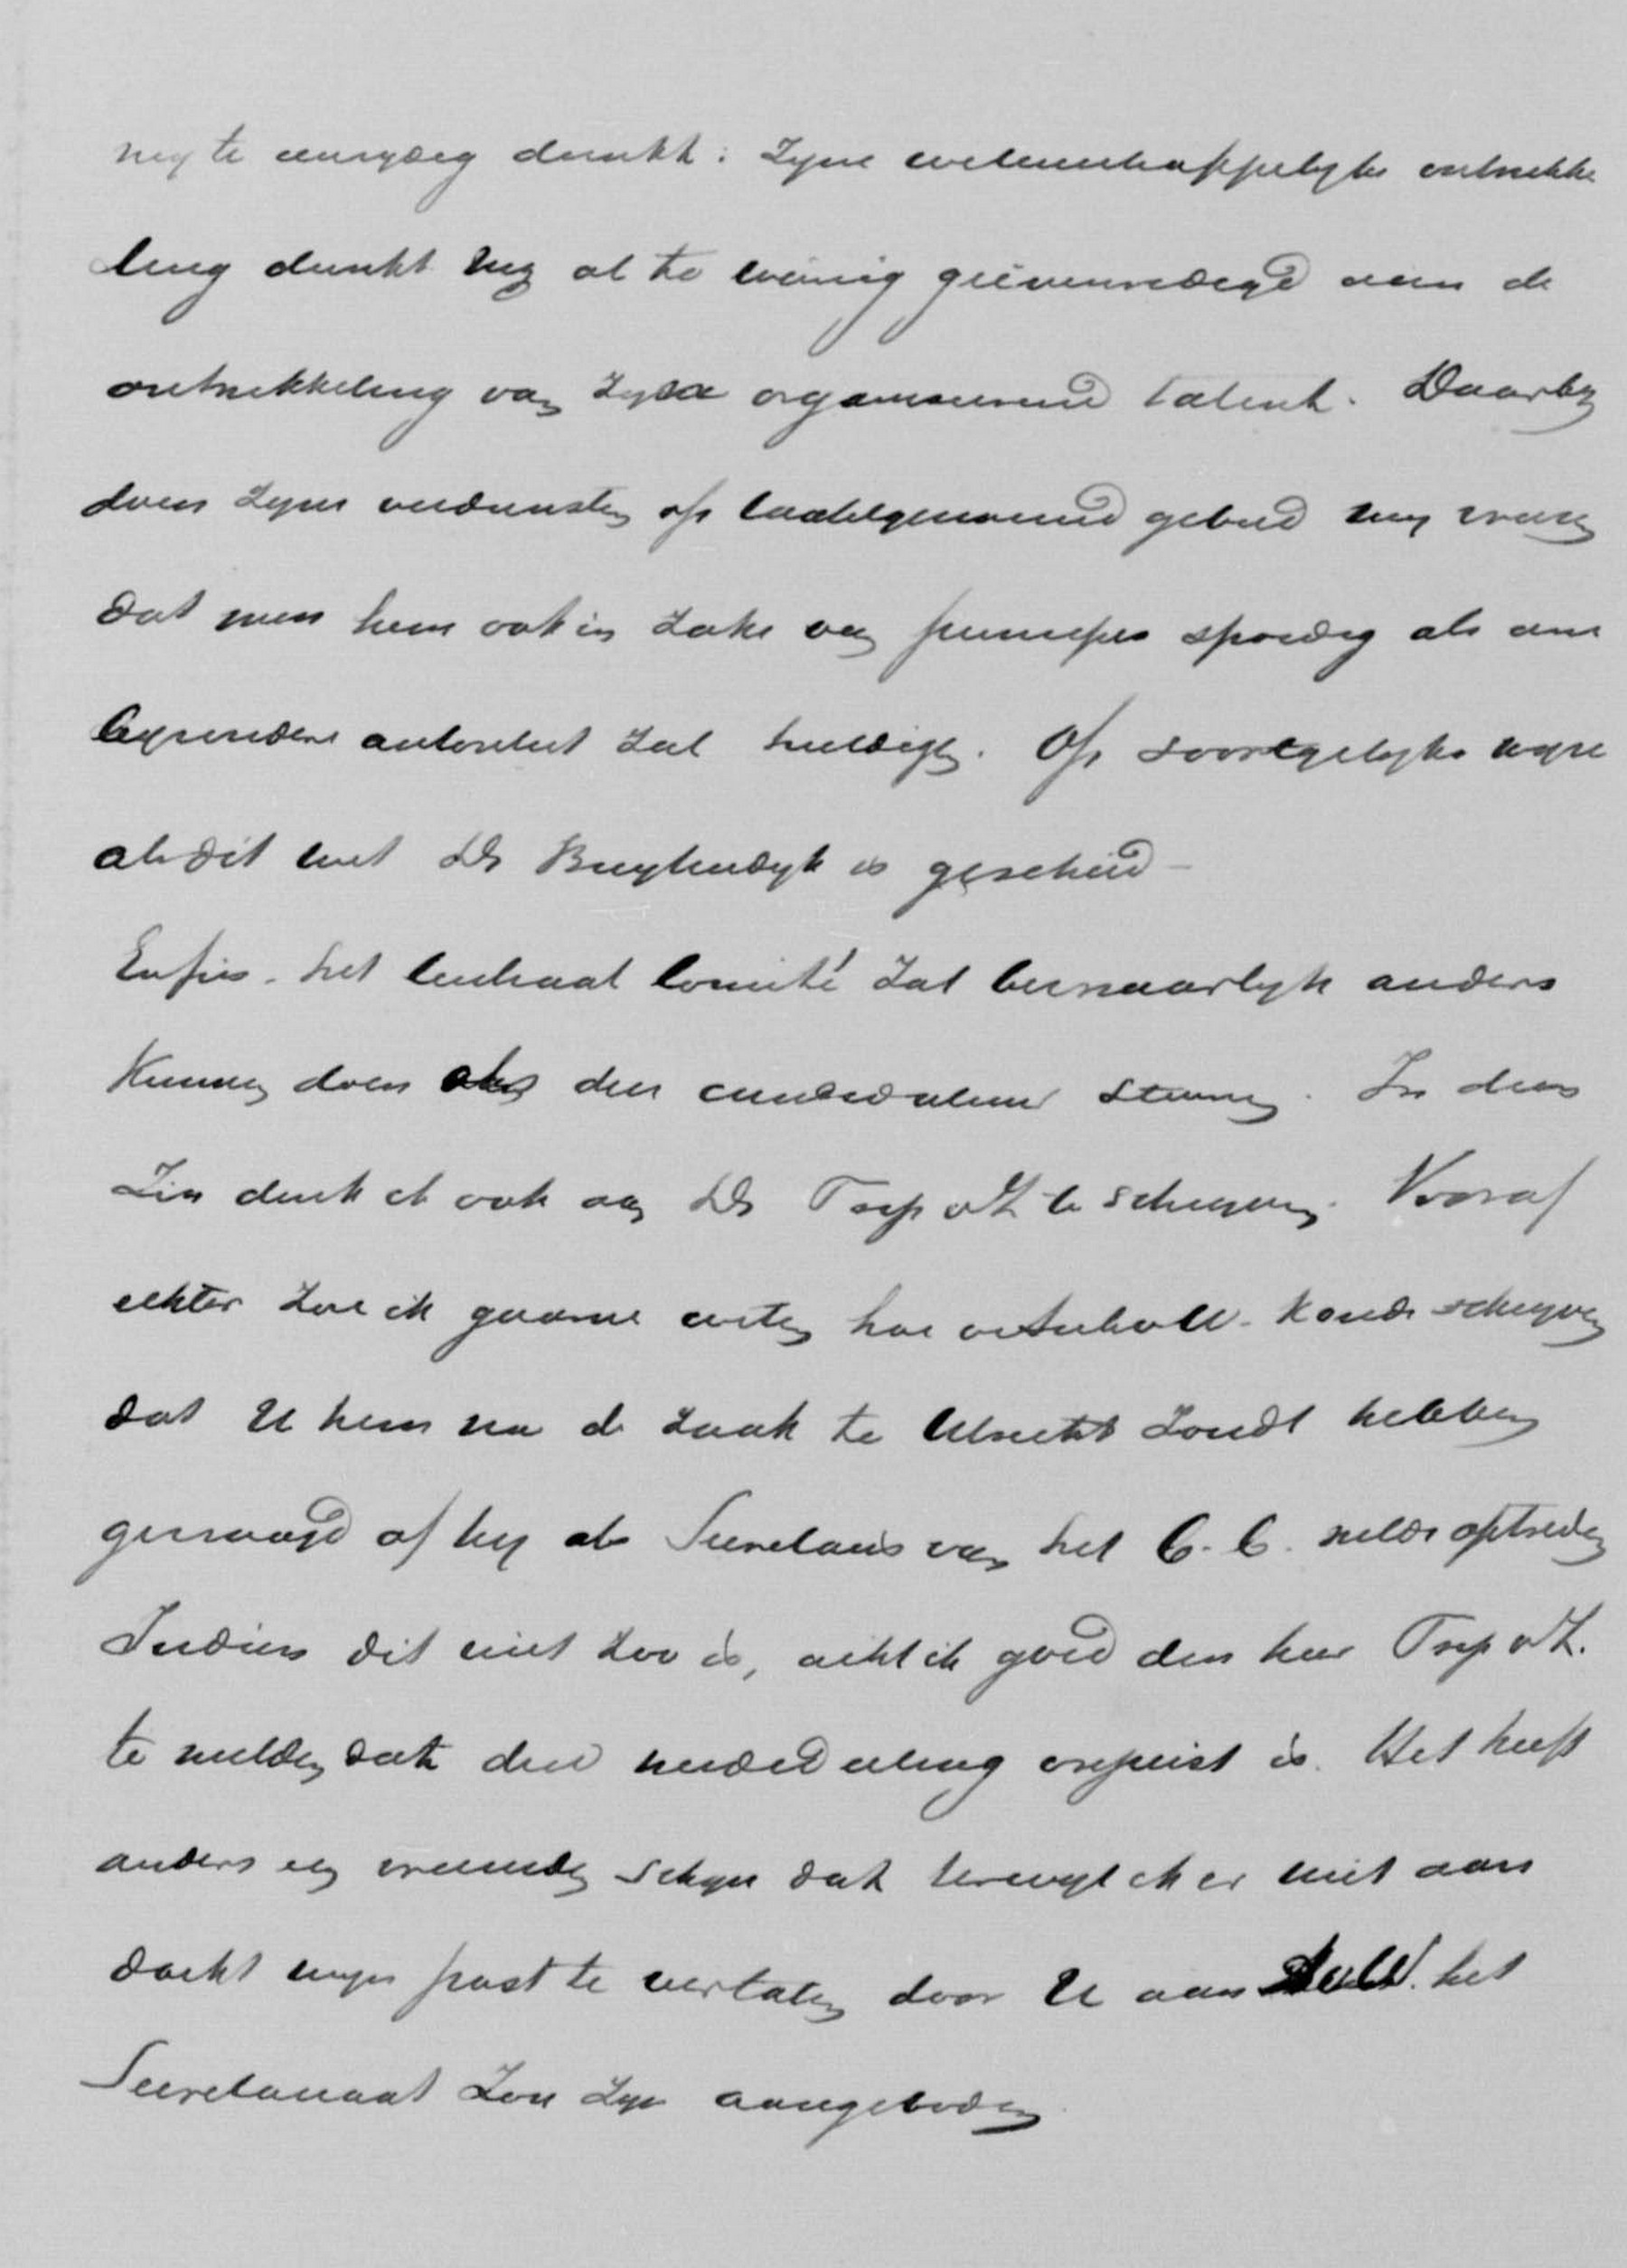 my te eenzydig dunkt: Zyne wetenschappelyke ontwikke
ling dunkt my al te weinig geëvenredigd aan de
ontwikkeling van zyne organiseerend talent. Daarby
doen zyne verdiensten op laatstgenoemd gebied my vreezen
dat men hem ook in zake van principes spoedig als eene
byzondere autoriteit zal huldigen. Op soortgelyke wyze
als dit met Ds Buytendyk is geschied -
Enfin. het Centraal Comité zal bezwaarlyk anders
kunnen doen als den candidaten steunen. In dien
zin denk ik ook aan Ds Trip v Z. te schryven. Vooraf
echter zou ik gaarne weten hoe konde schryven
dat U hem na de zaak te Utrecht zoudt hebben
gevraagd of hy als Secretaris van het C.C. wilde optreden
Indien dit niet zoo is, acht ik goed den heer Trip v Z.
te melden dat die mededeeling onjuist is. Het heeft
anders een vreemden schyn dat terwyl ik er niet aan
dacht myn post te verlaten door U aan het
Secretariaat zou zyn aangeboden